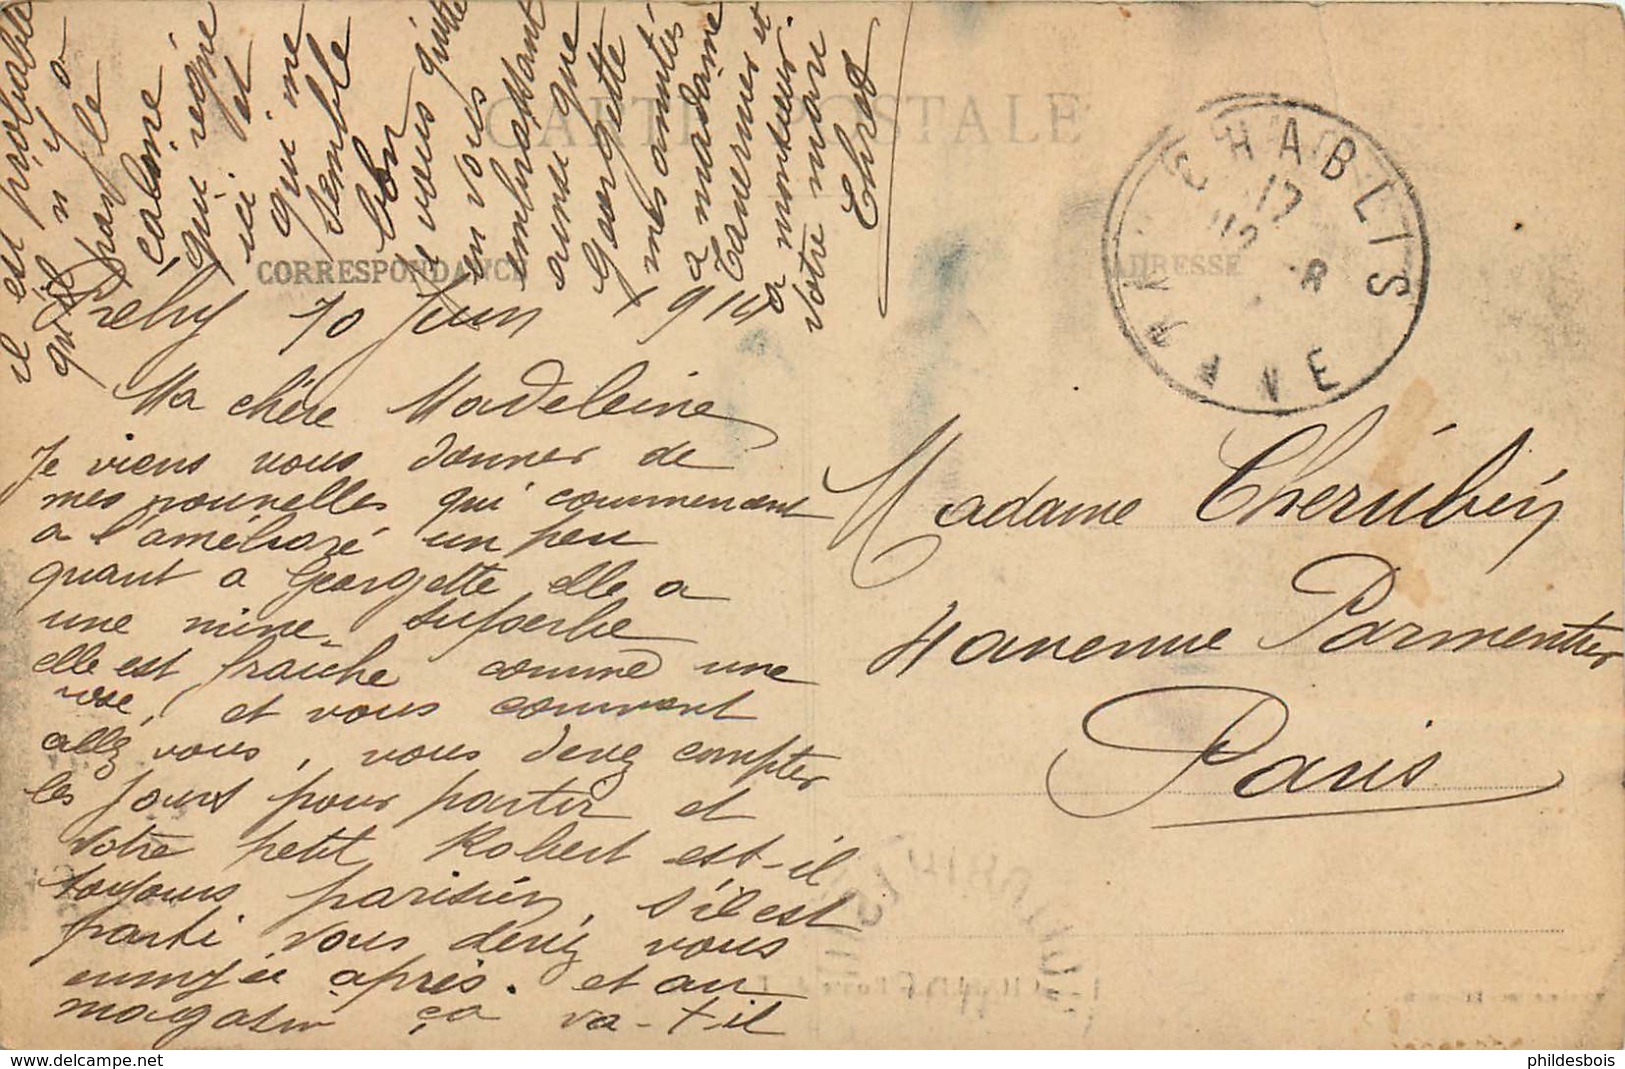 CARTE POSTALE
CORRESPONDANCE
ADRESSE
CHABLIS
YONNE
Préhy 10 Juin 1914
Ma chère Madeleine
Je viens vous donner de
mes nouvelles qui commencent
a l'amélioré un peu
quant a Georgette elle a
une mine superbe
elle est fraîche comme une
rose, et vous comment
allez vous, vous devez compter
les jours pour partir et
votre petit Robert est-il
toujours parisien, s'il est
parti vous devez vous
ennuyée après. et au
magasin ça va-t-il
il est probable
qu'il n'y a
pas le
calme
qui règne
ici et
qui me
semble
bon
Je vous quitte
en vous
embrassant
ainsi que
Georgette
mes amitiés
a madame
Tavernier et
a monsieur.
votre mari
Madame Cherúbin
4 avenue Parmentier
Paris
phildesbois
www.delcampe.net